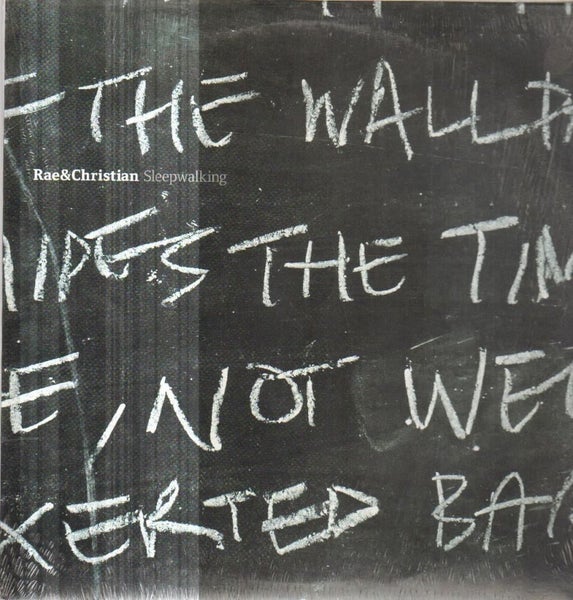 THE WALL
Rae&Christian Sleepwalking
THE TIM
E, NOT WE
XERTED BA